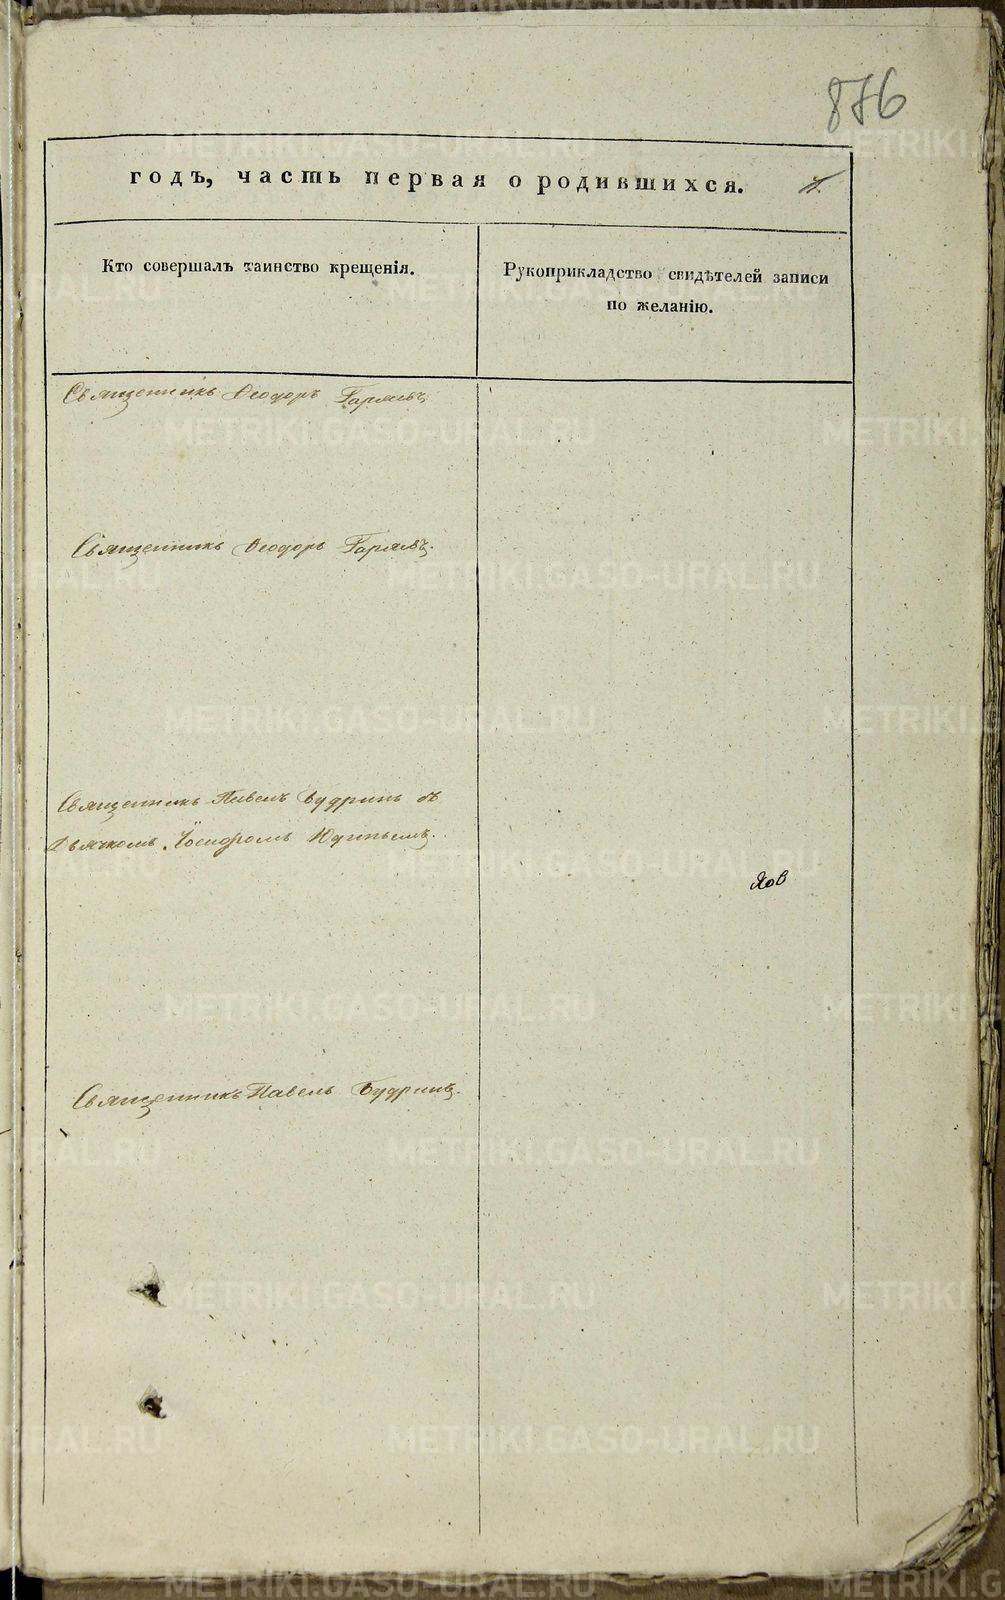 876
годъ, часть первая о родившихся.
Кто совершалъ таинство крещенія.
Рукоприкладство свидѣтелей записи
по желанію.
Священникъ Ѳеодоръ
Священникъ Ѳеодоръ
Священникъ Павелъ Будринъ съ
Дьячкомъ Юдинымъ.
Ковъ
Священникъ Павелъ Будринъ.
METRIKI.GASO-URAL.RU